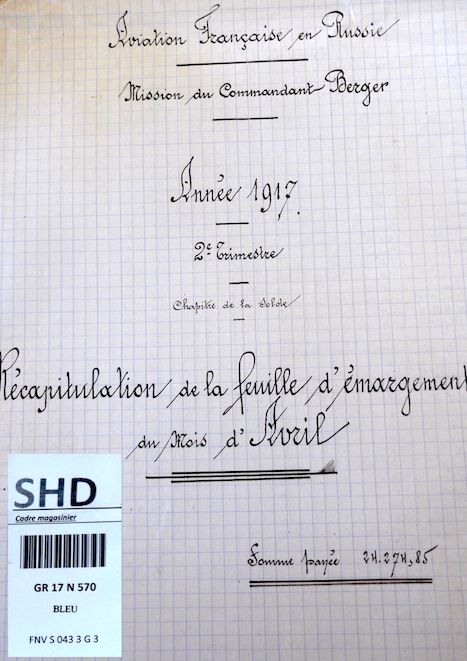 Aviation Française en Russie
Mission du Commandant Berger
Année 1917.
2e Trimestre
Chapitre de la Solde
Récapitulation de la feuille d'émargement
du Mois d'Avril
Somme payée 24.274,85
SHD
Cadre magasinier
GR 17 N 570
BLEU
FNV S 043 3 G 3